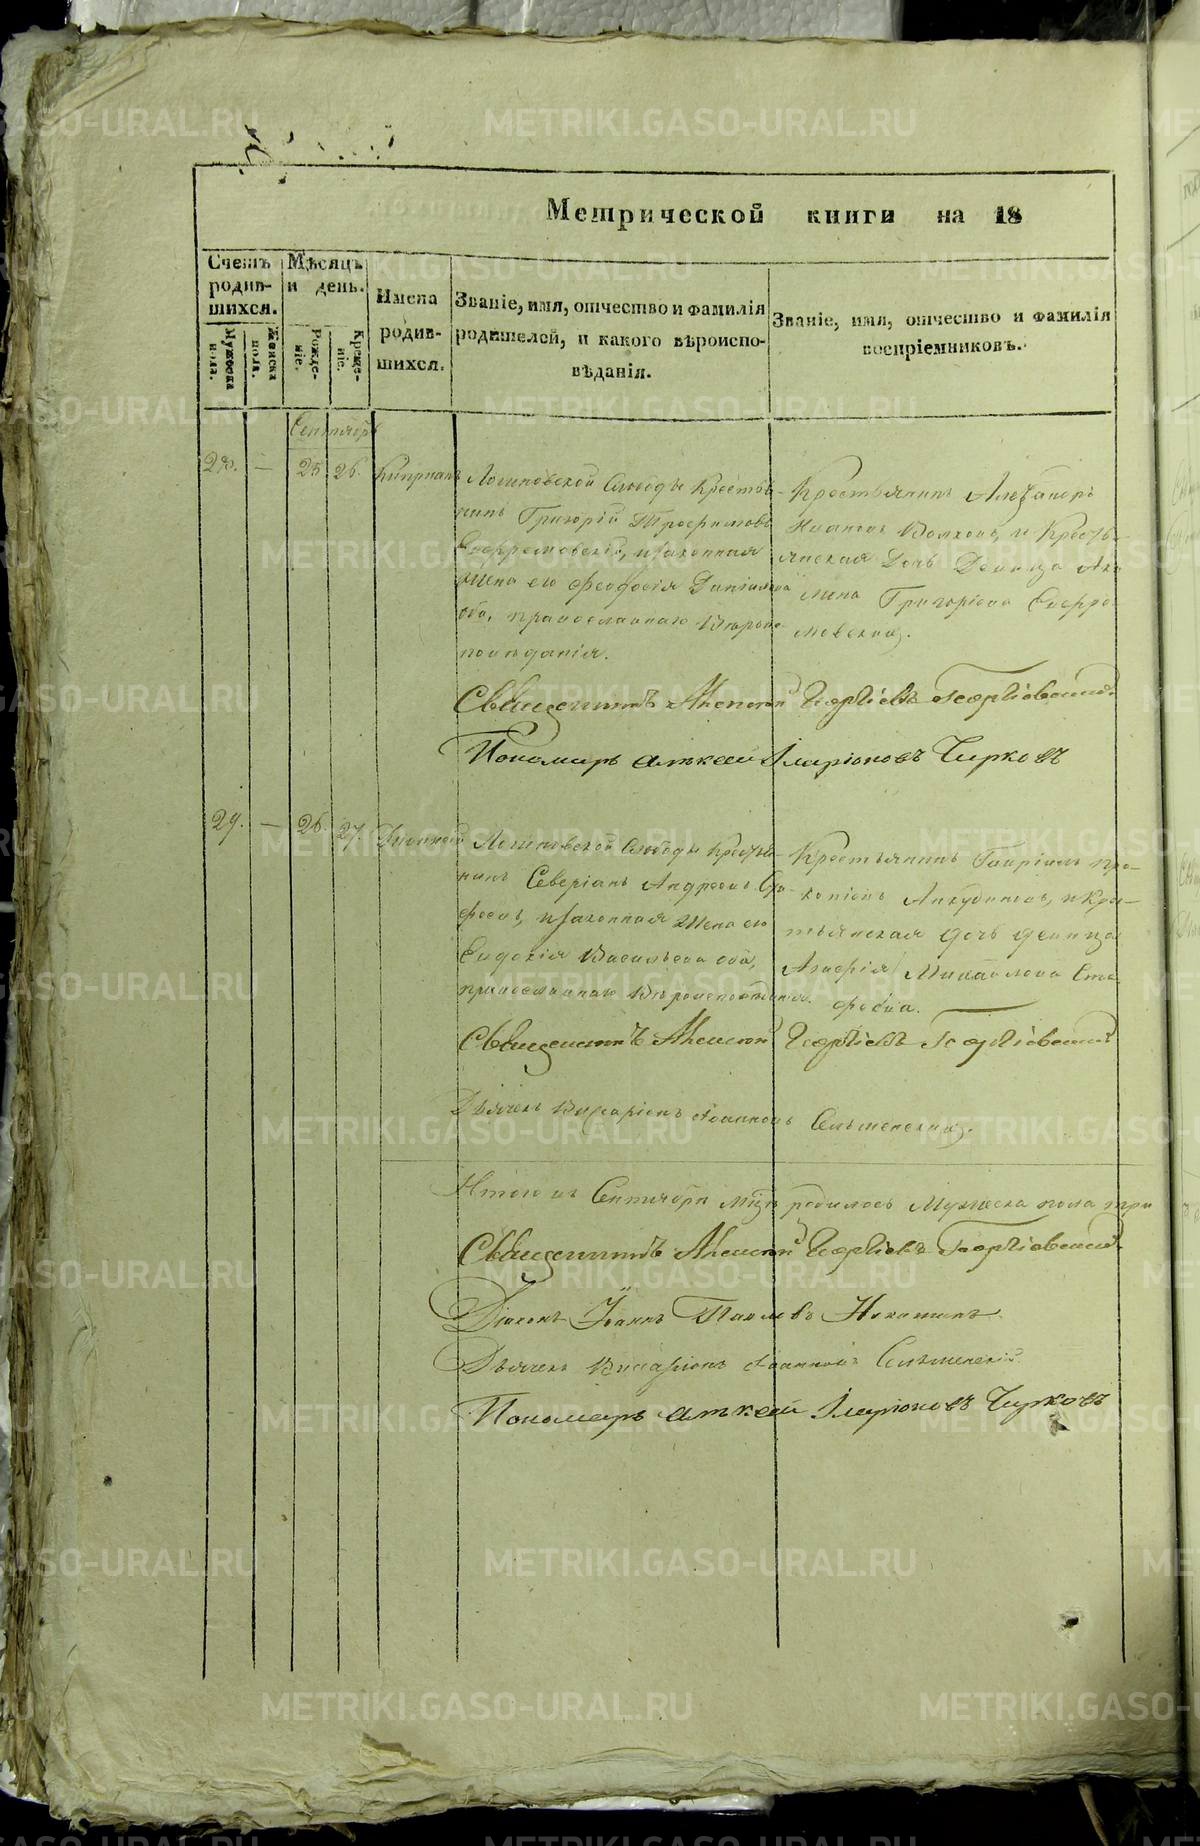 Метрической книги на 18
Счетъ родив-шихся.
Мужеска пола.
Женска пола.
Мѣсяцъ и день.
Рожде-ніе.
Креще-ніе.
Имена родив-шихся.
Званіе, имя, отчество и фамилія
родителей, и какого вѣроиспо-
вѣданія.
Званіе, имя, отчество и фамилія
воспріемниковъ.
Сентябрь
28. — 25 26. Кипріанъ
Логиновской Слободы Крестья-
нинъ Григорій Трофимовъ
Ефремовскій, и законная
жена его Феодосія Даніилова
оба, православнаго Вѣроис-
повѣданія.
Крестьянинъ Александръ
Ивановъ Волковъ, и Крестья-
янская Дочь Девица Аку
лина Григоріева Ефре-
мовскихъ.
Священникъ Алексій Георгіевъ Георгіевскій
Пономарь Алексей Иларіоновъ Чирковъ
29. — 26. 27. Діонисій
Логиновской Слободы Крестья-
нинъ Северіанъ Андреевъ
и законная жена его
Евдокія Васильева оба,
православнаго Вѣроисповѣданія.
Крестьянинъ Гавріилъ Про-
копіевъ Анкудиновъ, и Крес-
тьянская дочь девица
Агафія Михайлова
Священникъ Алексій Георгіевъ Георгіевскій
Дьячекъ Виссаріонъ Іоанновъ
Итого въ Сентябрѣ мцѣ родилось Мужеска пола три
Священникъ Алексій Георгіевъ Георгіевскій
Діаконъ Іоаннъ Павловъ
Дьячекъ Виссаріонъ Іоанновъ
Пономарь Алексей Иларіоновъ Чирковъ
METRIKI.GASO-URAL.RU